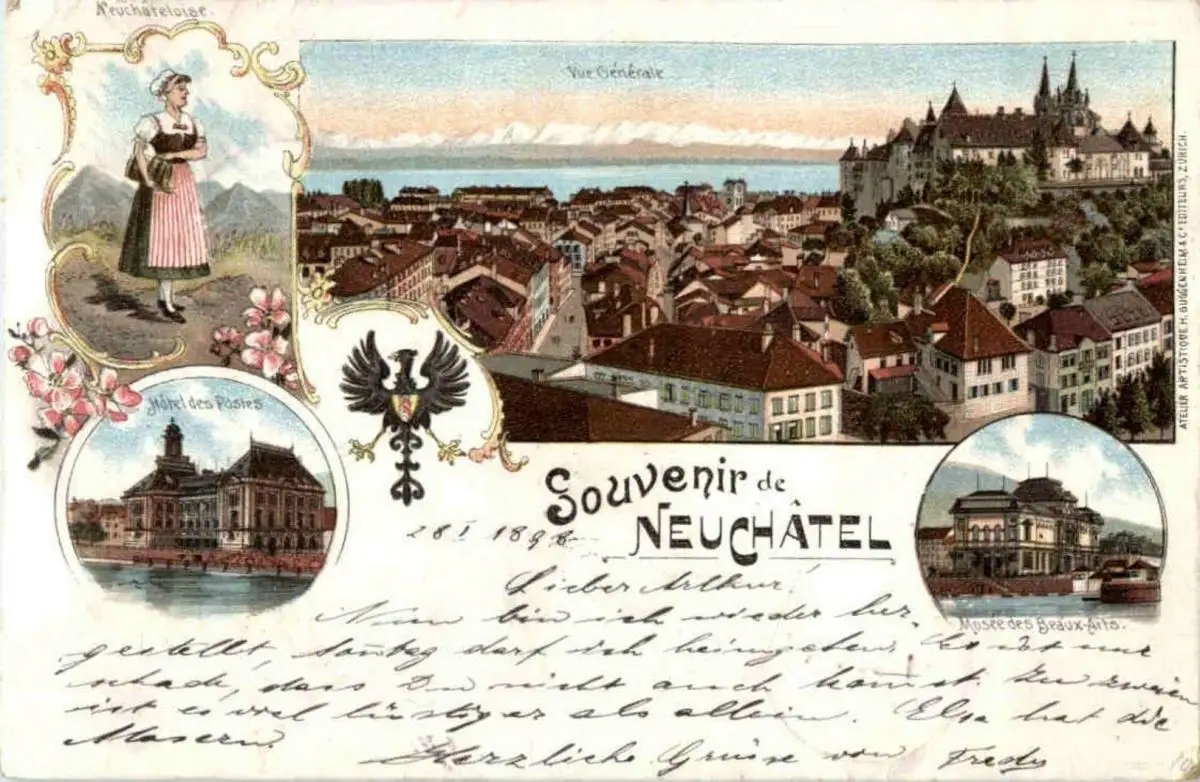 Neuchâteloise.
Vue Générale
ATELIER ARTISTIQUE H. GUGGENHEIM & Cº EDITEURS, ZÜRICH.
Hôtel des Postes
Souvenir de
NEUCHÂTEL
28 I 1898
Musée des Beaux-Arts.
Lieber Arthur!
Nun bin ich wieder her-
gestellt, Sontag darf ich heimgehen. Es ist nur
schade, dass Du nicht auch kamst. Zu zweien
ist es viel lustiger als allein. Elsa hat die
Masern.
Herzliche Grüsse von Fredy